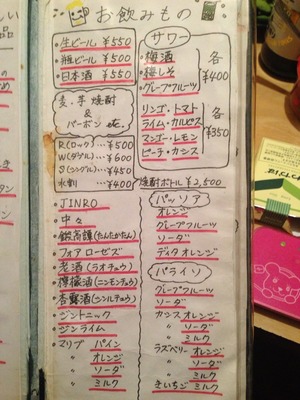 お飲みもの
・生ビール ¥550
・瓶ビール ¥500
・日本酒 ¥550
麦・芋 焼酎
&
バーボン etc.
R(ロック) … ¥500
W(ダブル) … ¥600
S(シングル) … ¥450
水割 … ¥400
サワー
・梅酒
・梅しそ
・グレープフルーツ
各
¥400
リンゴ・トマト
ライム・カルピス
マンゴー・レモン
ピーチ・カシス
各
¥350
焼酎ボトル ¥2,500
・JINRO
・中々
・鍛高譚(たんたかたん)
・フォア ローゼズ
・老酒(ラオチュウ)
・檸檬酒(ニンモンチュウ)
・杏露酒(シンルチュウ)
・ジントニック
・ジンライム
・マリブ パイン
〃 オレンジ
〃 ソーダ
〃 ミルク
パッソア
オレンジ
グレープフルーツ
ソーダ
ディタ オレンジ
パライソ
グレープフルーツ
ソーダ
カシス オレンジ
〃 ソーダ
〃 ミルク
ラズベリー オレンジ
〃 ソーダ
〃 ミルク
きいちご ミルク